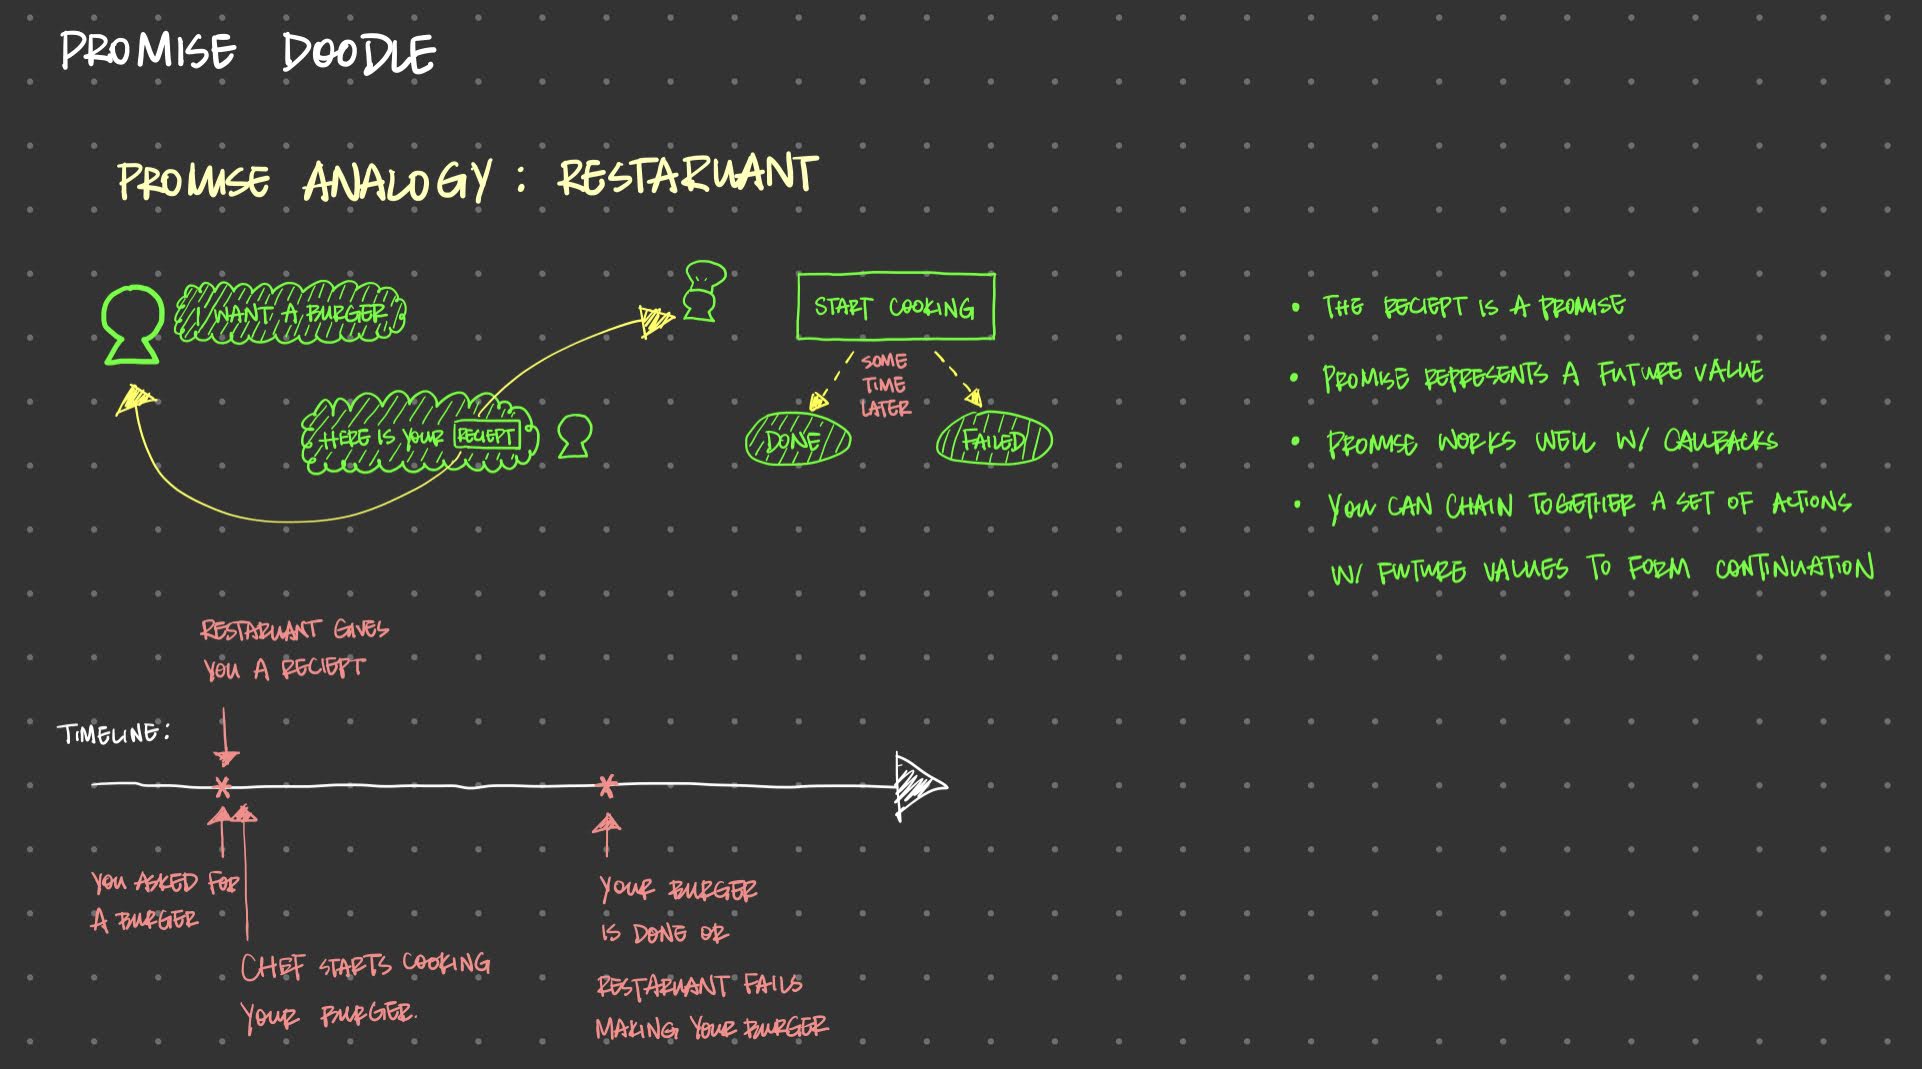 PROMISE DOODLE
PROMISE ANALOGY : RESTARUANT
I WANT A BURGER
HERE IS YOUR RECIEPT
START COOKING
SOME
TIME
LATER
DONE
FAILED
• THE RECIEPT IS A PROMISE
• PROMISE REPRESENTS A FUTURE VALUE
• PROMISE WORKS WELL W/ CALLBACKS
• YOU CAN CHAIN TOGETHER A SET OF ACTIONS
W/ FUTURE VALUES TO FORM CONTINUATION
RESTARUANT GIVES
YOU A RECIEPT
TIMELINE:
YOU ASKED FOR
A BURGER
CHEF STARTS COOKING
YOUR BURGER.
YOUR BURGER
IS DONE OR
RESTARUANT FAILS
MAKING YOUR BURGER